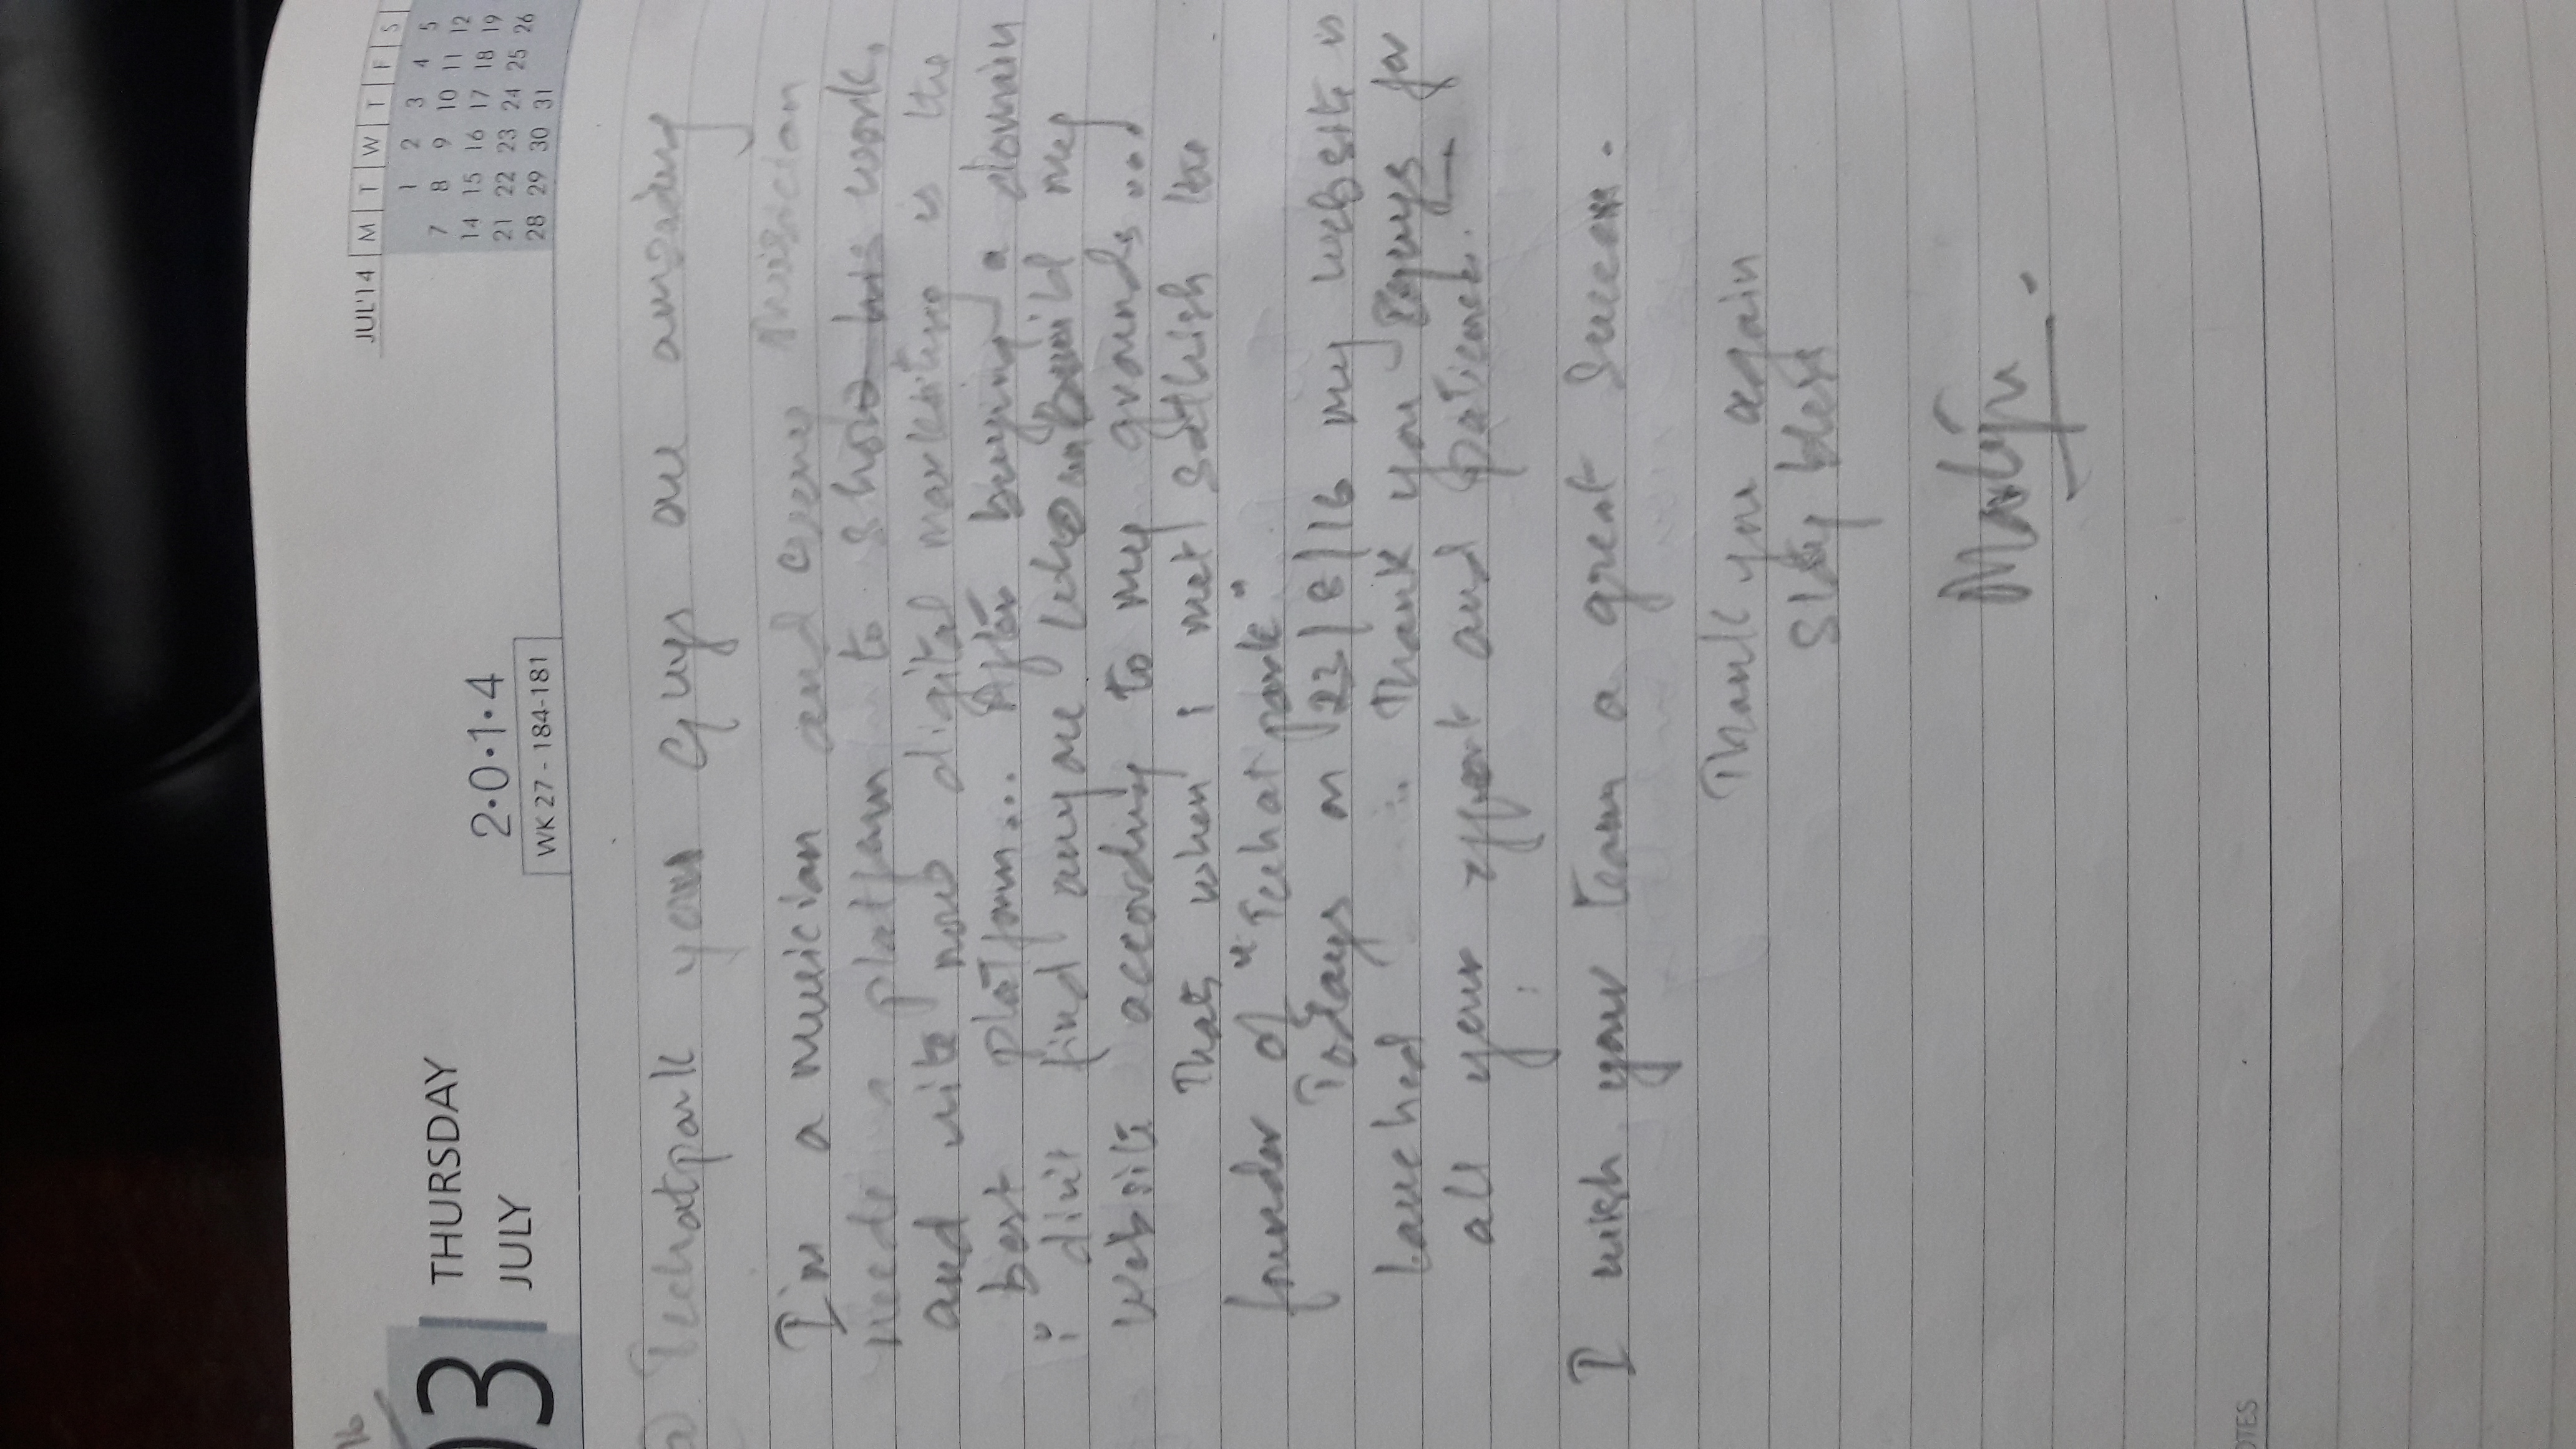 16
03
THURSDAY
JULY
2·0·1·4
WK 27 - 184-181
JUL'14 M T W T F S
1 2 3 4 5
7 8 9 10 11 12
14 15 16 17 18 19
21 22 23 24 25 26
28 29 30 31
@ Techatpark guys are amazing
I'm a musician and every Musician
needs a platform to show his work.
and rite now digital marketing is the
best platform... After buying a domain
i din't find anyone who can Build my
website according to my grounds...
Thats when i met Sathish the
founder of "Techatpark"
Todays on 23/8/16 my website is
Lauched Thank you guys for
all your effort and patience.
I wish your team a great Success.
Thank you again
Stay bless
OTES